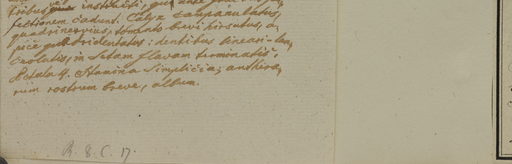 fectionem cadunt. Calyx campanulatus,
quadrinervius, tomento brevi hirsutus, a,
pice quadridentatus: dentibus lineari-lan,
ceolatis, in setam flavam terminatis;
Petala 4. Stamina Simplicia; anthera,
rum rostrum breve, album.
R. 8. C. 17.